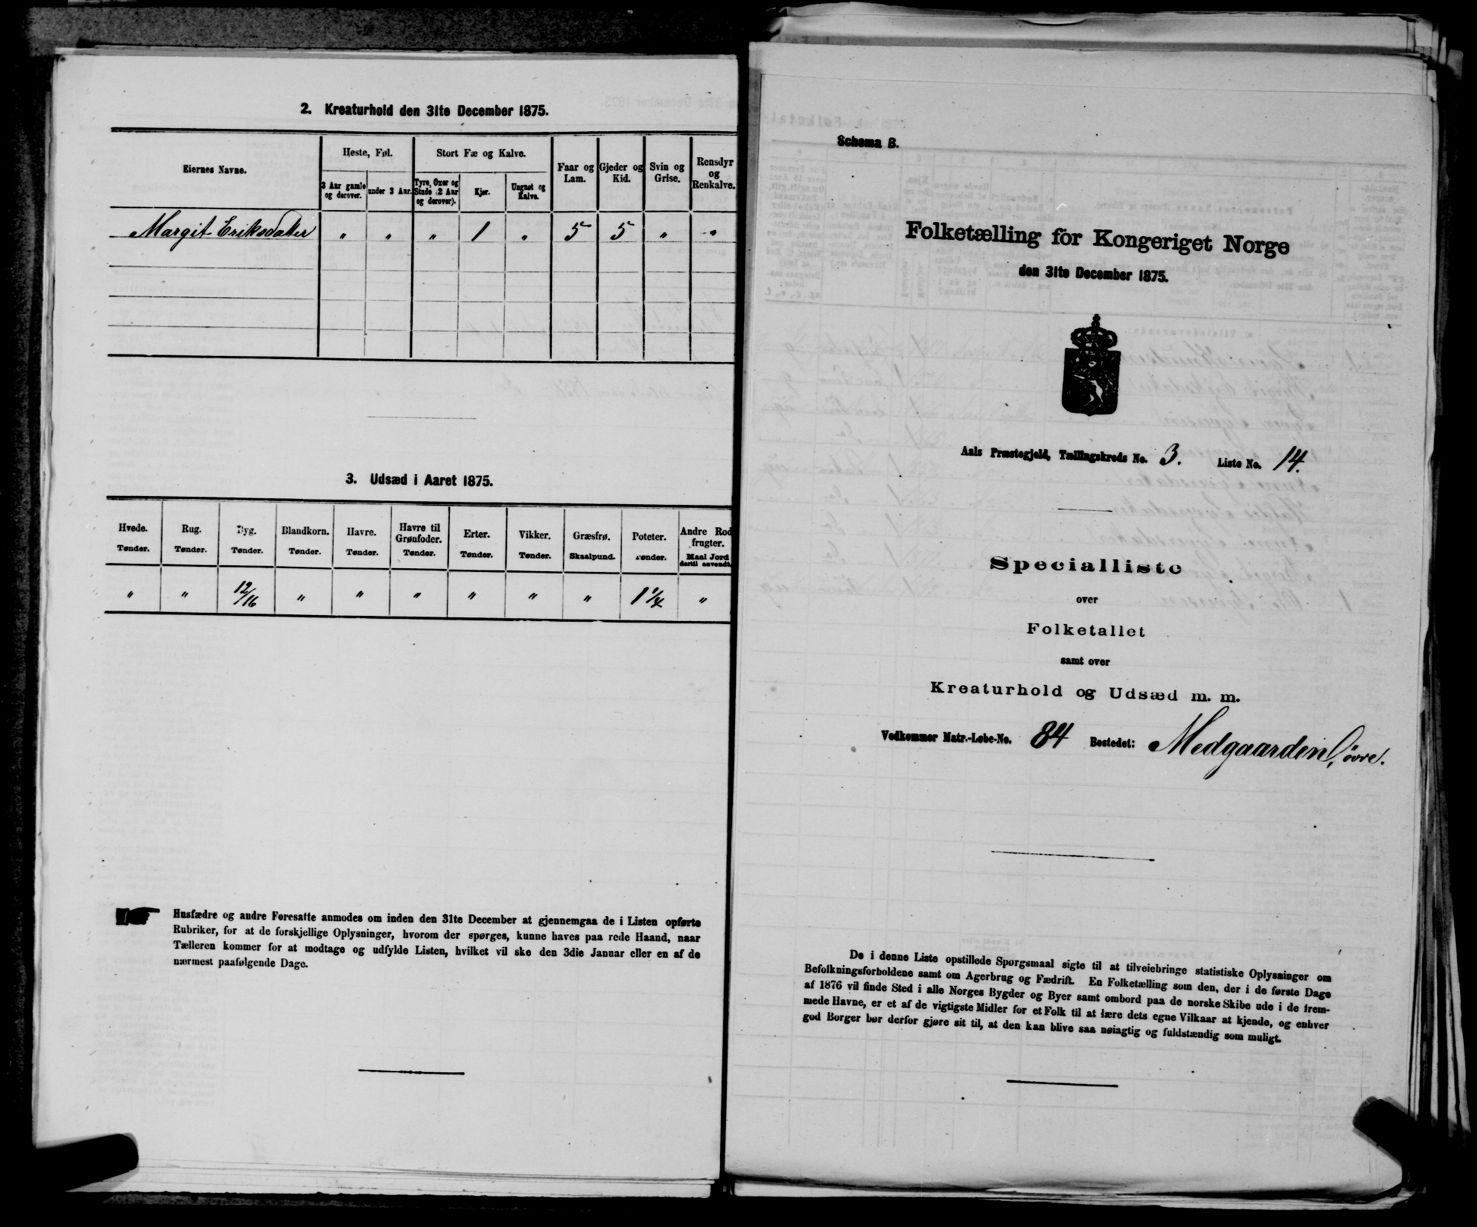 2. Kreaturhold den 31te December 1875.
Eiernes Navne.
Heste, Føl.
Stort Fæ og Kalve.
Faar og Lam.
Gjeder og Kid.
Svin og Grise.
Rensdyr og Renkalve.
3 Aar gamle og derover.
under 3 Aar.
Tyre, Oxer og Stude (2 Aar og derover).
Kjør.
Ungnøt og Kalve.
Margit Eriksdatter " " " 1 " 5 5 " "
3. Udsæd i Aaret 1875.
Hvede. Rug. Byg. Blandkorn. Havre. Havre til Grønfoder. Erter. Vikker. Græsfrø. Poteter. Andre Rodfrugter.
Tønder. Tønder. Tønder. Tønder. Tønder. Tønder. Tønder. Tønder. Skaalpund. Tønder. Maal Jord dertil anvendt.
" " 12/16 " " " " " " 1 1/4 "
Husfædre og andre Foresatte anmodes om inden den 31te December at gjennemgaa de i Listen opførte
Rubriker, for at de forskjellige Oplysninger, hvorom der spørges, kunne haves paa rede Haand, naar
Tælleren kommer for at modtage og udfylde Listen, hvilket vil ske den 3die Januar eller en af de
nærmest paafølgende Dage.
Schema B.
Folketælling for Kongeriget Norge
den 31te December 1875.
Aals Præstegjeld, Tællingskreds No. 3. Liste No. 14.
Specialliste
over
Folketallet
samt over
Kreaturhold og Udsæd m. m.
Vedkommer Matr.-Løbe-No. 84 Bostedet: Medgaarden, øvre.
De i denne Liste opstillede Spørgsmaal sigte til at tilveiebringe statistiske Oplysninger om
Befolkningsforholdene samt om Agerbrug og Fædrift. En Folketælling som den, der i de første Dage
af 1876 vil finde Sted i alle Norges Bygder og Byer samt ombord paa de norske Skibe ude i de frem-
mede Havne, er et af de vigtigste Midler for et Folk til at lære dets egne Vilkaar at kjende, og enhver
god Borger bør derfor gjøre sit til, at den kan blive saa nøiagtig og fuldstændig som muligt.